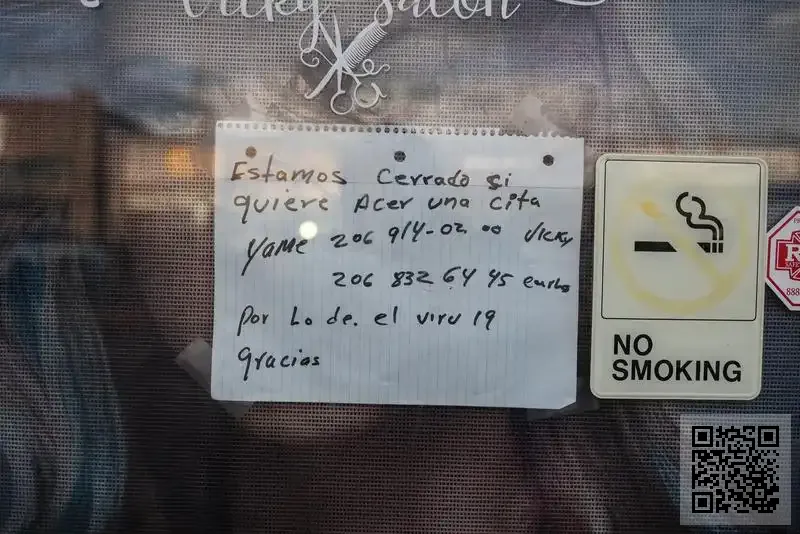 Vicky Salon
Estamos cerrado si
quiere Acer una cita
Yame 206 914-02 00 Vicky
206 832 64 45
por Lo de. el viru 19
gracias
NO
SMOKING
R
888